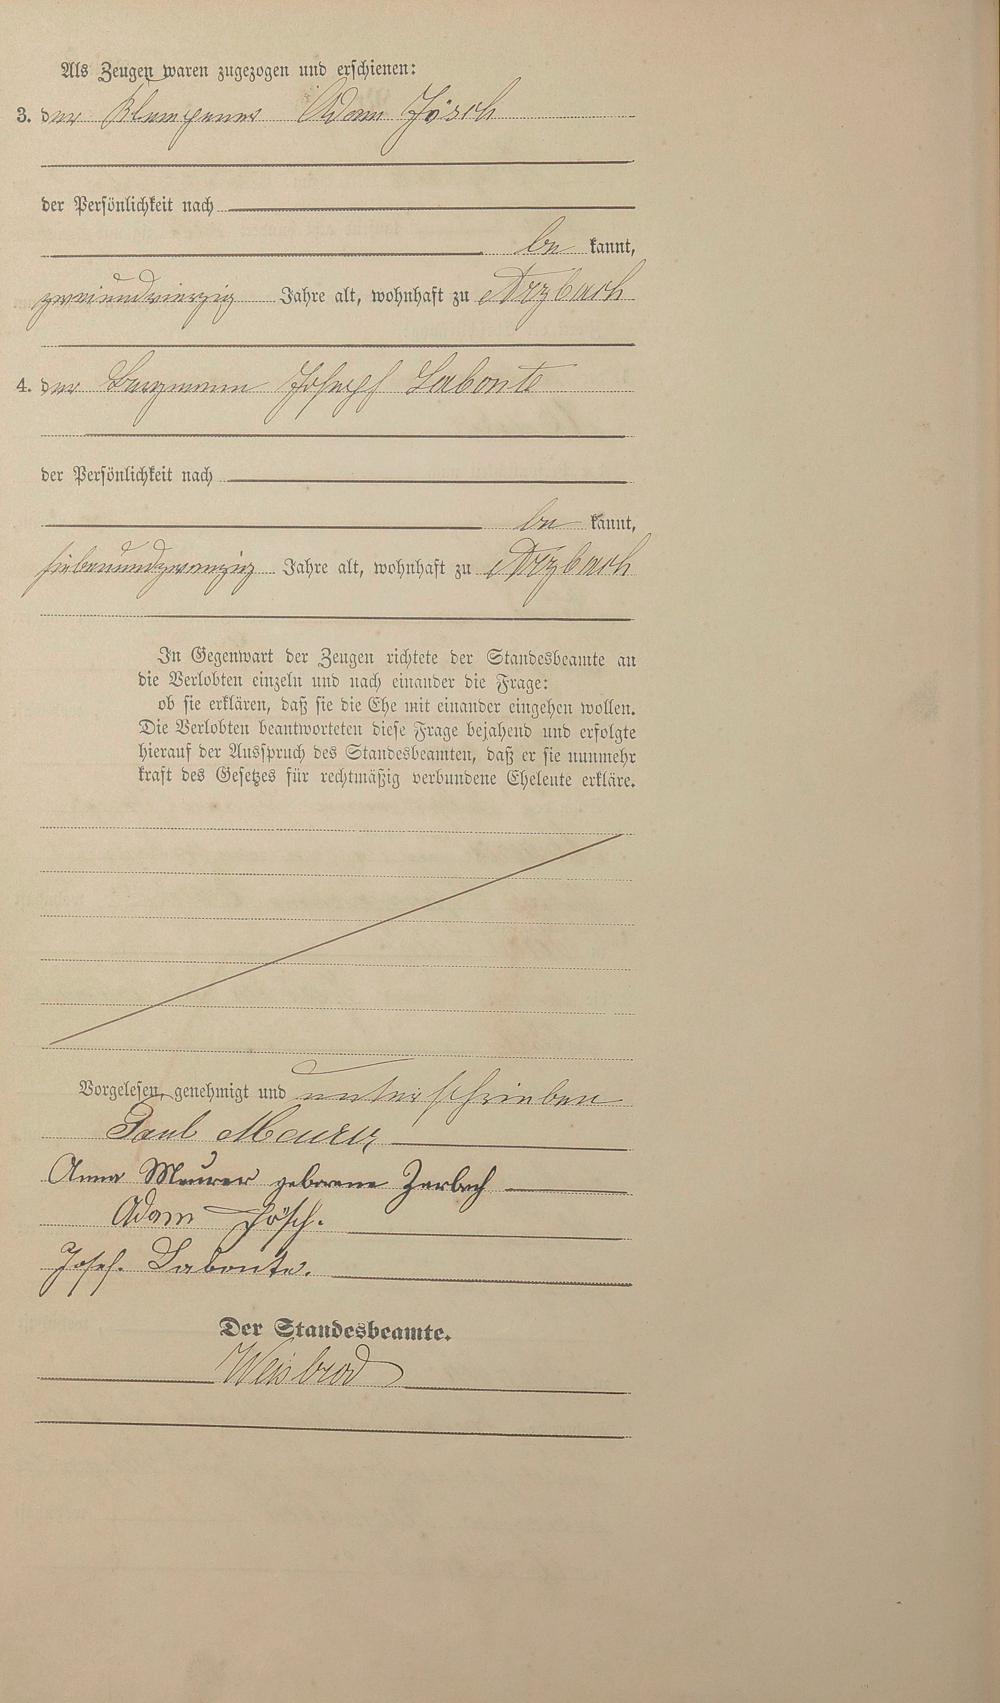 Als Zeugen waren zugezogen und erschienen:
3. der Klempener Adam Jösch
der Persönlichkeit nach
be kannt,
zweiundvierzig Jahre alt, wohnhaft zu Arzbach
4. der Bergmann Joseph Labonte
der Persönlichkeit nach
be kannt,
siebenundzwanzig Jahre alt, wohnhaft zu Arzbach
In Gegenwart der Zeugen richtete der Standesbeamte an
die Verlobten einzeln und nach einander die Frage:
ob sie erklären, daß sie die Ehe mit einander eingehen wollen.
Die Verlobten beantworteten diese Frage bejahend und erfolgte
hierauf der Ausspruch des Standesbeamten, daß er sie nunmehr
kraft des Gesetzes für rechtmäßig verbundene Eheleute erkläre.
Vorgelesen, genehmigt und unterschrieben
Paul Meurer
Anna Meurer geborene Zerbach
Adam Jösch.
Josef. Labonte.
Der Standesbeamte.
Weisbrod